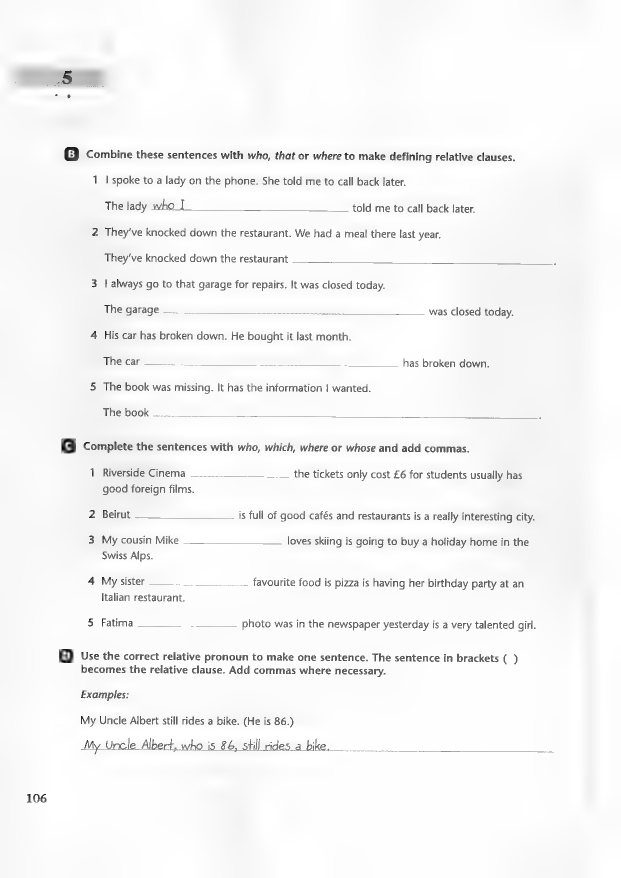 5
B Combine these sentences with who, that or where to make defining relative clauses.
1 I spoke to a lady on the phone. She told me to call back later.
The lady who I ____________ told me to call back later.
2 They've knocked down the restaurant. We had a meal there last year.
They've knocked down the restaurant ____________.
3 I always go to that garage for repairs. It was closed today.
The garage ____________ was closed today.
4 His car has broken down. He bought it last month.
The car ____________ has broken down.
5 The book was missing. It has the information I wanted.
The book ____________.
C Complete the sentences with who, which, where or whose and add commas.
1 Riverside Cinema ____________ the tickets only cost £6 for students usually has
good foreign films.
2 Beirut ____________ is full of good cafés and restaurants is a really interesting city.
3 My cousin Mike ____________ loves skiing is going to buy a holiday home in the
Swiss Alps.
4 My sister ____________ favourite food is pizza is having her birthday party at an
Italian restaurant.
5 Fatima ____________ photo was in the newspaper yesterday is a very talented girl.
D Use the correct relative pronoun to make one sentence. The sentence in brackets ( )
becomes the relative clause. Add commas where necessary.
Examples:
My Uncle Albert still rides a bike. (He is 86.)
My Uncle Albert, who is 86, still rides a bike.
106